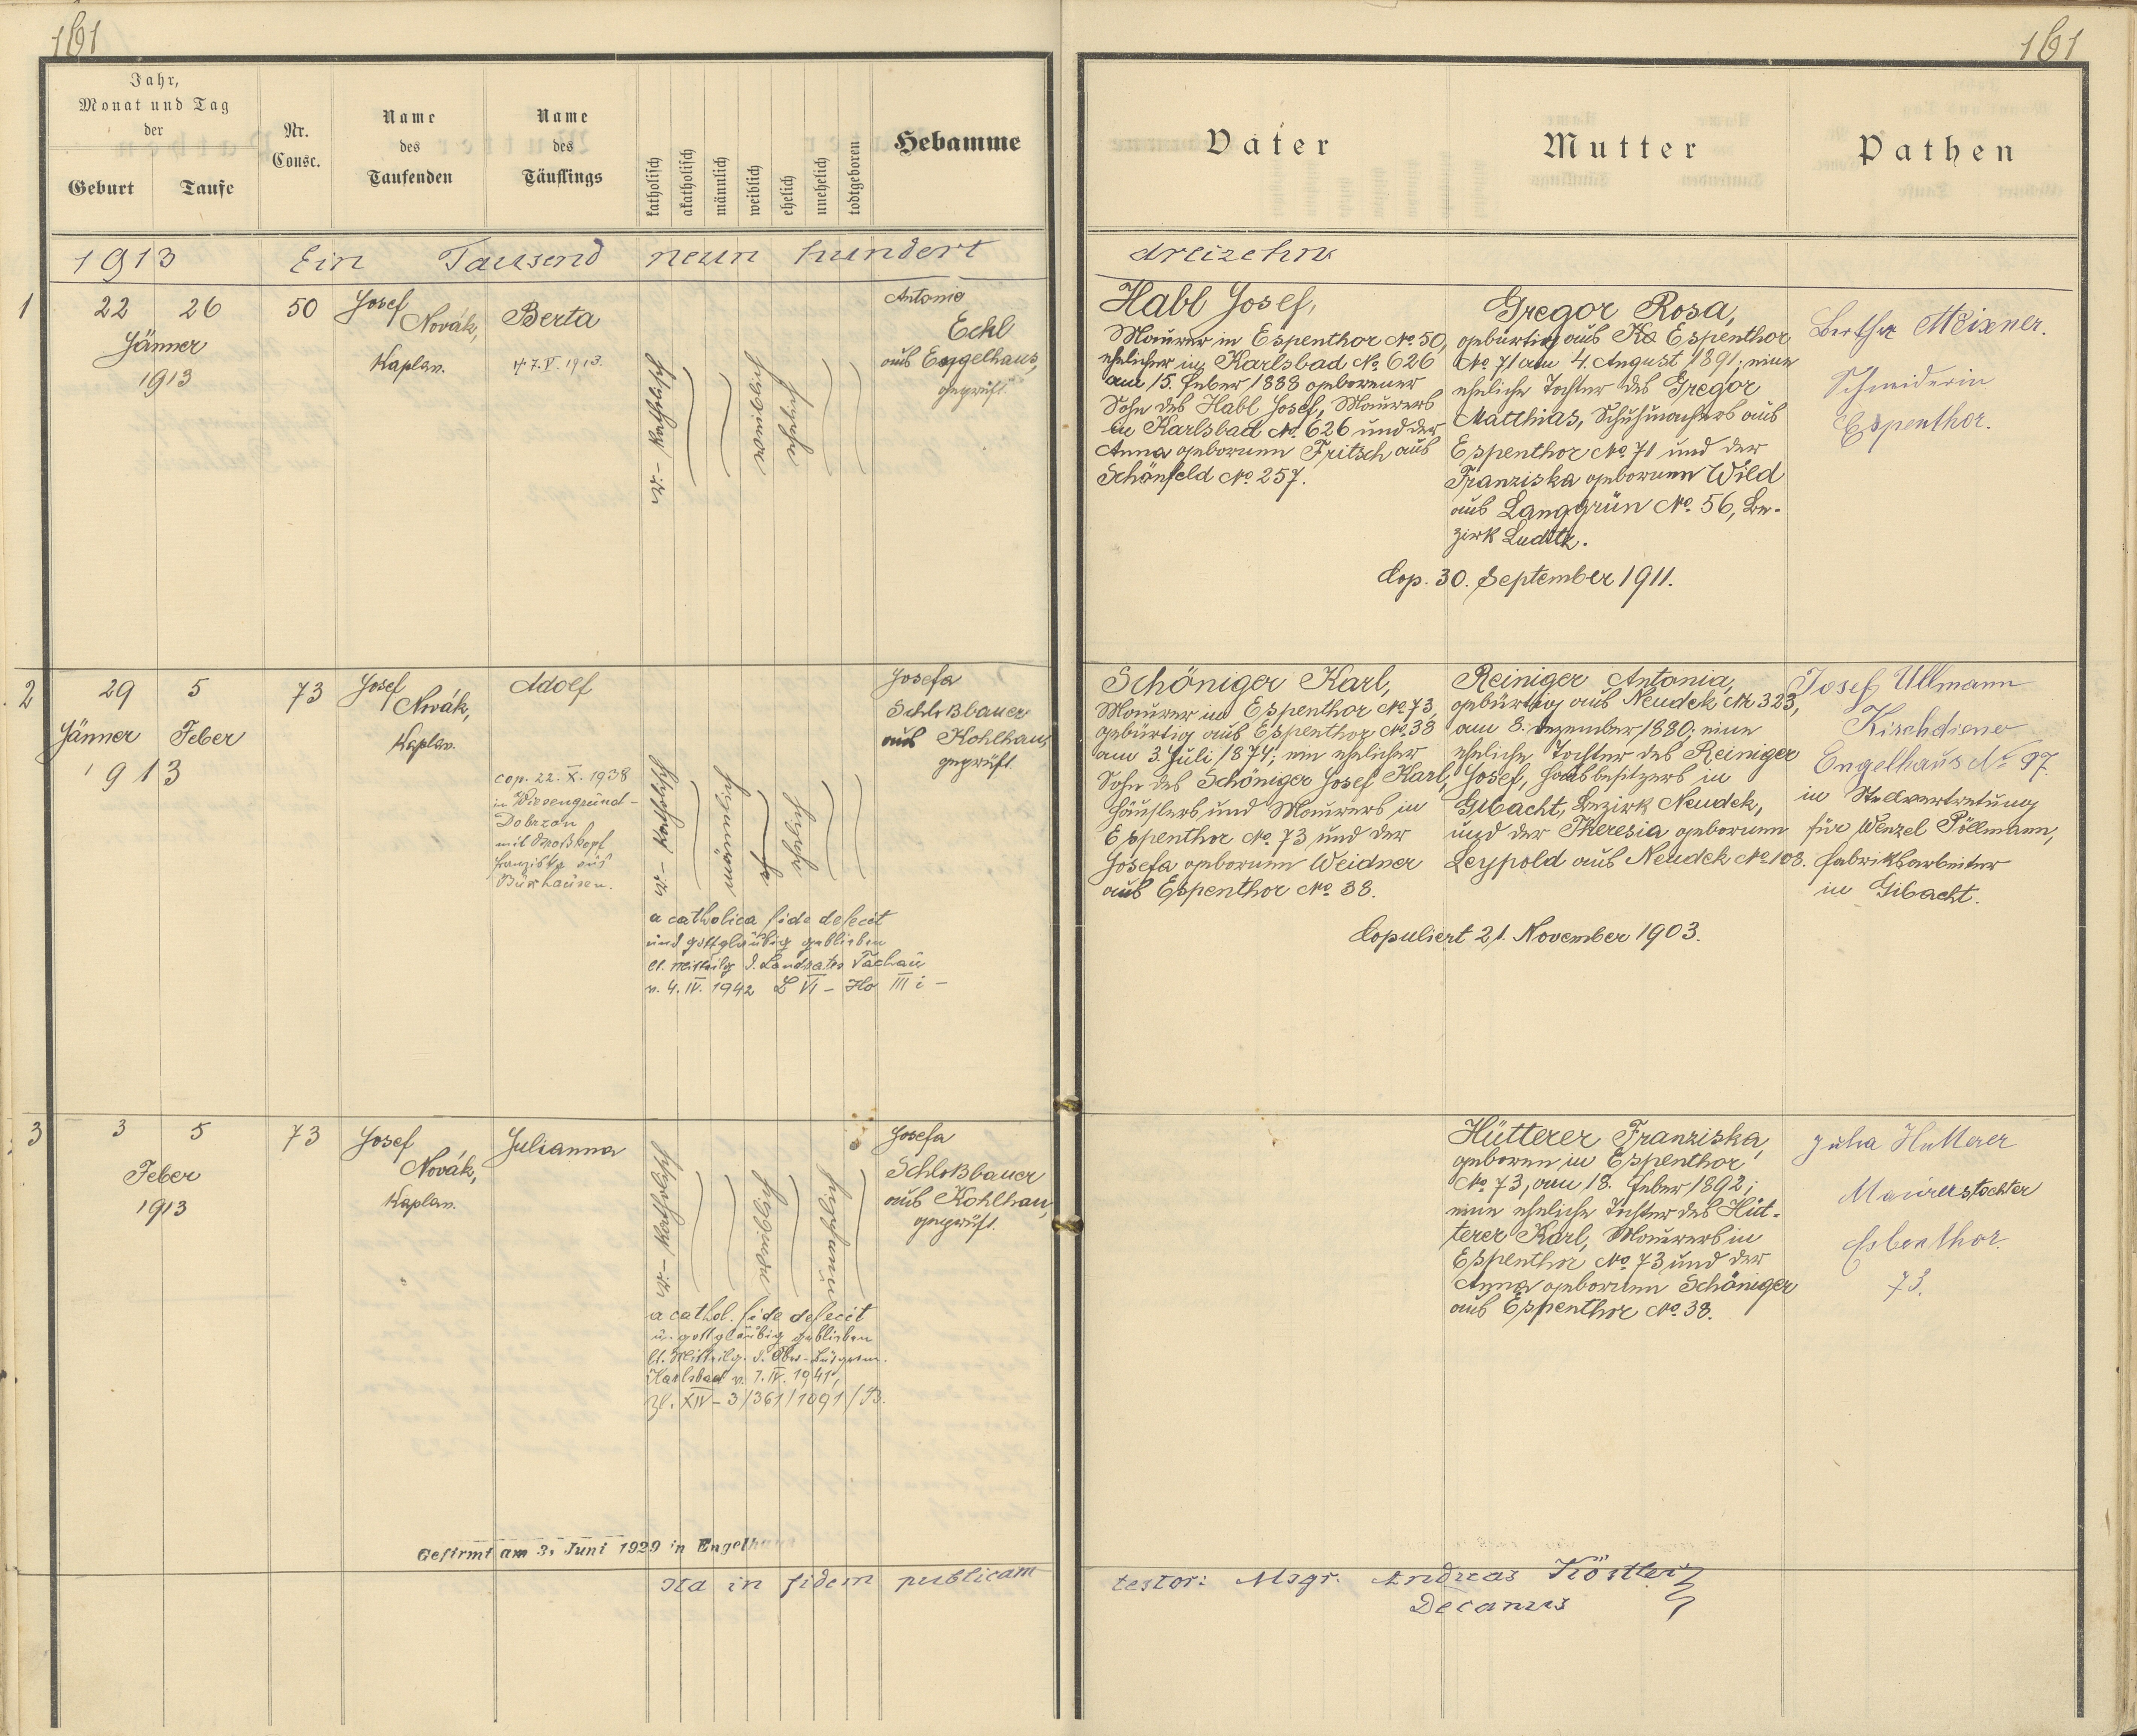 161
161
Jahr,
Monat und Tag
der
Geburt
Taufe
Nr.
Consc.
Name
des
Taufenden
Name
des
Täuflings
katholisch
akatholisch
männlich
weiblich
ehelich
unehelich
todtgeboren
Hebamme
Vater
Mutter
Pathen
1913 Ein Tausend neun hundert dreizehn
1
22 26
Jänner
1913
50
Josef
Novák,
Kaplan.
Berta
† 7.V.1913.
r.-katholisch
weiblich
ehelich
Antonie
Eckl
aus Engelhaus,
geprüft.
Habl Josef,
Maurer in Espenthor No. 50,
ehelicher in Karlsbad No. 626
am 15. Feber 1888 geborener
Sohn des Habl Josef, Maurers
in Karlsbad No. 626 und der
Anna geborenen Fritsch aus
Schönfeld No. 257.
Gregor Rosa,
gebürtig aus Espenthor
No. 71 am 4. August 1891; eine
eheliche Tochter des Gregor
Matthias, Schuhmachers aus
Espenthor No. 71 und der
Franziska geborenen Wild
aus Langgrün No. 56, Be-
zirk Luditz.
Cop. 30. September 1911.
Bertha Meixner.
Schneiderin
Espenthor.
2
29 5
Jänner Feber
1913
73
Josef
Novák,
Kaplan.
Adolf
cop. 22. X. 1938
in Wiesengrund-
Dobrzan
mit Großkopf
Franziska aus
r.-katholisch
männlich
ehelich
a catholica fide defecit
und gottgläubig geblieben
lt. Mitteilg d. Landrates Tachau
v. 4. IV. 1942 L VI - Ho III i -
Josefa
Schloßbauer
aus Kohlhau,
geprüft
Schöniger Karl,
Maurer in Espenthor No. 73,
gebürtig aus Espenthor No. 38
am 3. Juli 1874; ein ehelicher
Sohn des Schöniger Josef Karl,
Häuslers und Maurers in
Espenthor No. 73 und der
Josefa geborenen Weidner
aus Espenthor No. 38.
Reiniger Antonia,
gebürtig aus Neudek Nr 323,
am 8. Dezember 1880; eine
eheliche Tochter des Reiniger
Josef, Hausbesitzers in
Gibacht, Bezirk Neudek,
und der Theresia geborenen
Leypold aus Neudek No 108.
Copuliert 21. November 1903.
Josef Ullmann
Kirchdiener
Engelhaus No 97.
in Stellvertretung
für Wenzel Pöllmann,
Fabriksarbeiter
in Gibacht.
3
3 5
Feber
1913
73
Josef
Novák,
Kaplan.
Julianna
r.-katholisch
weiblich
unehelich
a cathol. fide defecit
u. gottgläubig geblieben
lt. Mitteilg. d. Ober-Bürgerm.
Karlsbad v. 7. IV. 1941,
Zl. XIV-3/361/1091/43.
Josefa
Schloßbauer
aus Kohlhau,
geprüft.
Hütterer Franziska,
geboren in Espenthor
No. 73, am 18. Feber 1892;
eine eheliche Tochter des Hüt-
terer Karl, Maurers in
Espenthor No. 73 und der
Anna geborenen Schöniger
aus Espenthor No. 38.
Julia Hütterer
Maurerstochter
Esbenthor.
73.
Gefirmt am 3. Juni 1929 in Engelhaus
Ita in fidem publicam testor: Msgr. Andreas Köstler
Decanus